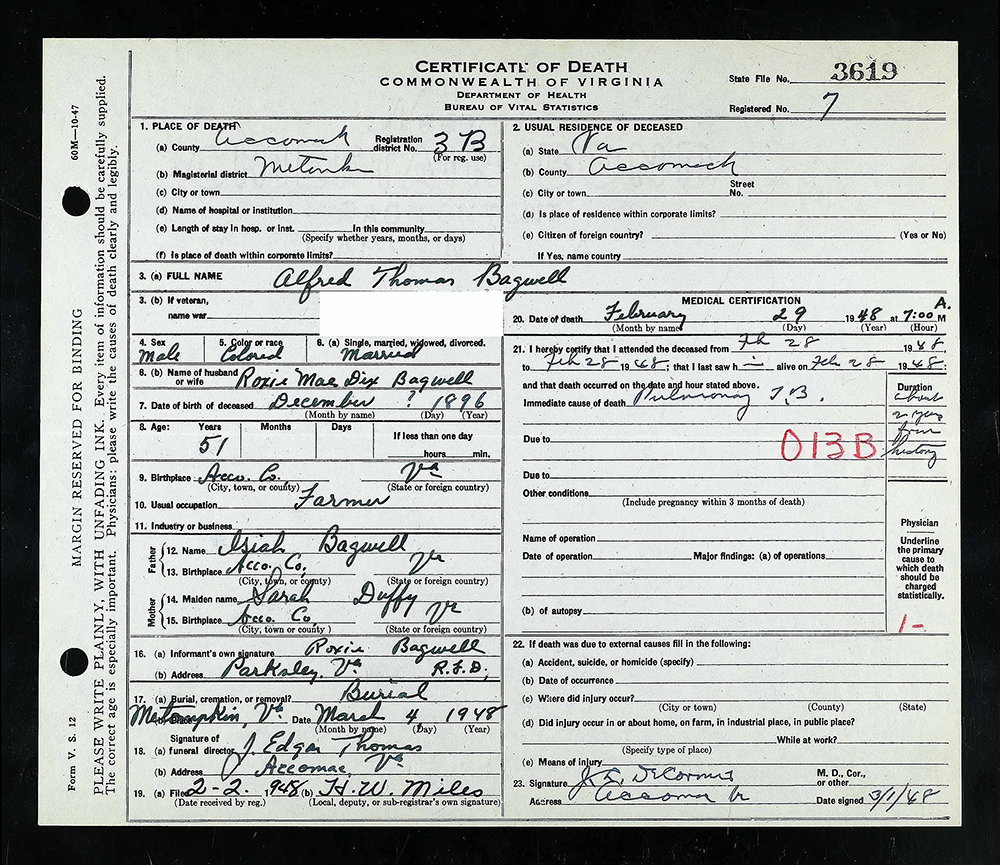 CERTIFICATE OF DEATH
COMMONWEALTH OF VIRGINIA
DEPARTMENT OF HEALTH
BUREAU OF VITAL STATISTICS
State File No. 3619
Registered No. 7
60M—10-47
MARGIN RESERVED FOR BINDING
Form V. S. 12
PLEASE WRITE PLAINLY, WITH UNFADING INK. Every item of information should be carefully supplied.
The correct age is especially important. Physicians: please write the causes of death clearly and legibly.
1. PLACE OF DEATH
(a) County Accomack Registration district No. 3 B
(For reg. use)
(b) Magisterial district
(c) City or town
(d) Name of hospital or institution
(e) Length of stay in hosp. or inst. In this community
(Specify whether years, months, or days)
(f) Is place of death within corporate limits?
2. USUAL RESIDENCE OF DECEASED
(a) State Va
(b) County Accomack
(c) City or town Street No.
(d) Is place of residence within corporate limits?
(e) Citizen of foreign country? (Yes or No)
If Yes, name country
3. (a) FULL NAME Alfred Thomas Bagwell
3. (b) If veteran, name war
4. Sex Male
5. Color or race Colored
6. (a) Single, married, widowed, divorced. Married
6. (b) Name of husband or wife Roxie Mae Dix Bagwell
7. Date of birth of deceased December ? 1896
(Month by name) (Day) (Year)
8. Age: Years 51 Months Days If less than one day
hours min.
9. Birthplace Acco. Co. Va
(City, town, or county) (State or foreign country)
10. Usual occupation Farmer
11. Industry or business
Father
12. Name Isiah Bagwell
13. Birthplace Acco. Co. Va
(City, town, or county) (State or foreign country)
Mother
14. Maiden name Sarah Duffy
15. Birthplace Acco. Co. Va
(City, town, or county) (State or foreign country)
16. (a) Informant's own signature Roxie Bagwell
(b) Address Parksley, Va R.F.D.
17. (a) Burial, cremation, or removal? Burial
Metompkin, Va Date March 4 1948
(Month by name) (Day) (Year)
18. Signature of
(a) funeral director J. Edgar Thomas
(b) Address Accomac, Va
19. (a) Filed 2-2. 1948 (b) H. W. Miles
(Date received by reg.) (Local, deputy, or sub-registrar's own signature)
MEDICAL CERTIFICATION
20. Date of death February 29 1948 at 7:00 A. M
(Month by name) (Day) (Year) (Hour)
21. I hereby certify that I attended the deceased from Feb 28 1948,
to Feb 28 1948; that I last saw h im alive on Feb 28 1948;
and that death occurred on the date and hour stated above.
Immediate cause of death Pulmonary T.B.
Duration
about
2 years
from
history
Due to
013B
Due to
Other conditions
(Include pregnancy within 3 months of death)
Name of operation
Date of operation Major findings: (a) of operations
(b) of autopsy
Physician
Underline the primary cause to which death should be charged statistically.
1-
22. If death was due to external causes fill in the following:
(a) Accident, suicide, or homicide (specify)
(b) Date of occurrence
(c) Where did injury occur?
(City or town) (County) (State)
(d) Did injury occur in or about home, on farm, in industrial place, in public place?
While at work?
(Specify type of place)
(e) Means of injury
23. Signature J. L. DeCormis M. D., Cor., or other
Address Accomac Va Date signed 3/1/48